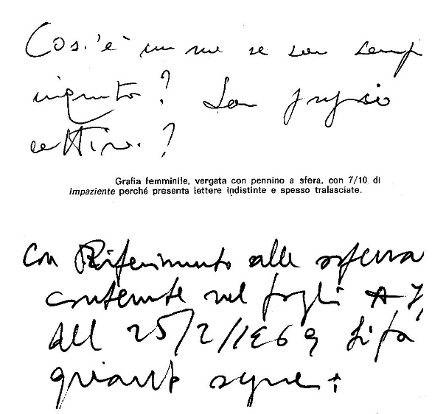 Cos'è in me se son semp
ingrato? Son proprio
cattivo?
Grafia femminile, vergata con pennino a sfera, con 7/10 di
impaziente perché presenta lettere indistinte e spesso tralasciate.
Con Riferimento alle
contenute nel fogli A 7,
del 25/2/1969 si fa
quanto segue: